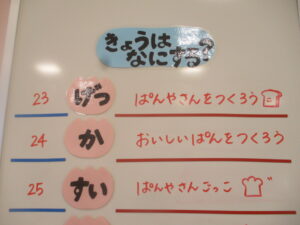 きょうは
なにする?
23 げつ ぱんやさんをつくろう
24 か おいしいぱんをつくろう
25 すい ぱんやさんごっこ